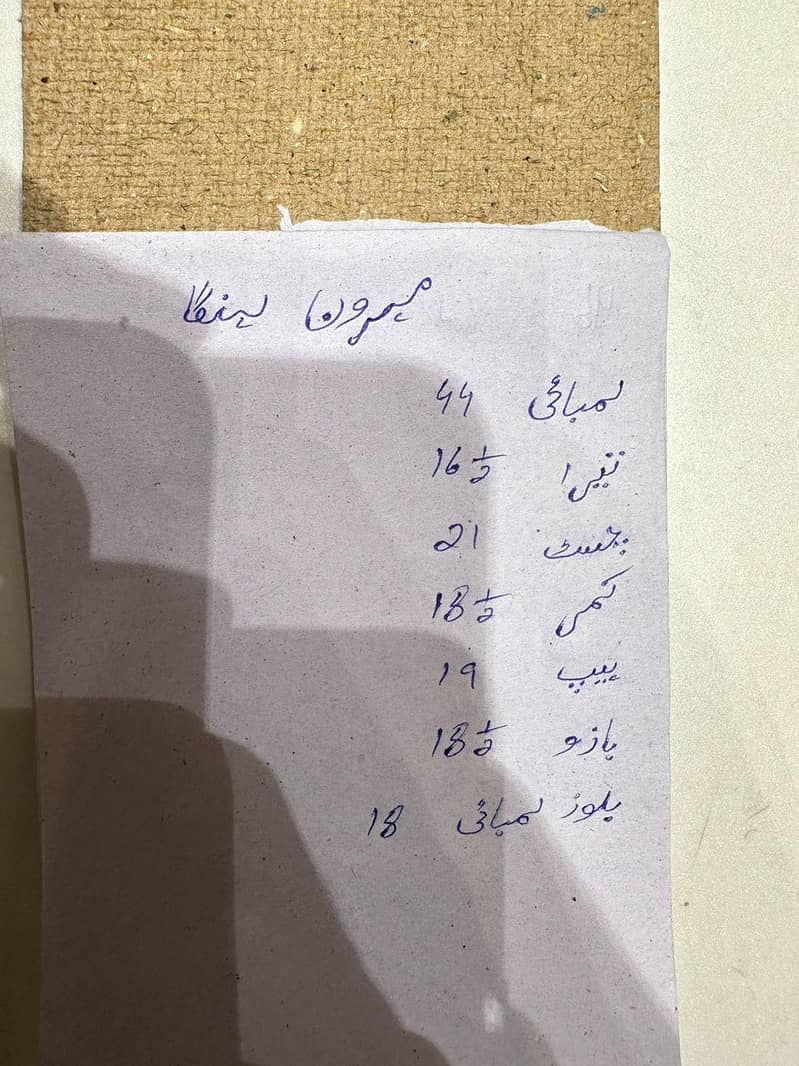 میرون لہنگا
لمبائی 44
تیرا 16 1/2
چسٹ 21
کمر 18 1/2
ہیپ 19
بازو 18 1/2
بلوز لمبائی 18